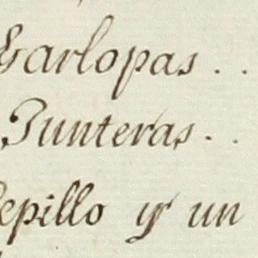 Garlopas . .
Junteras . .
Cepillo y un